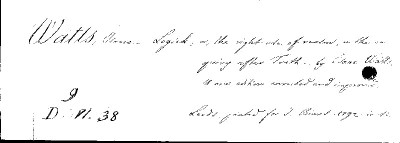 Watts, Isaac - Logick, or, the right use of reason, in the en
quiry after Truth - by Isaac Watts.
A new edition corrected and improved.
D. N. 38
Leeds, printed for J. Binns. 1792. in 12.